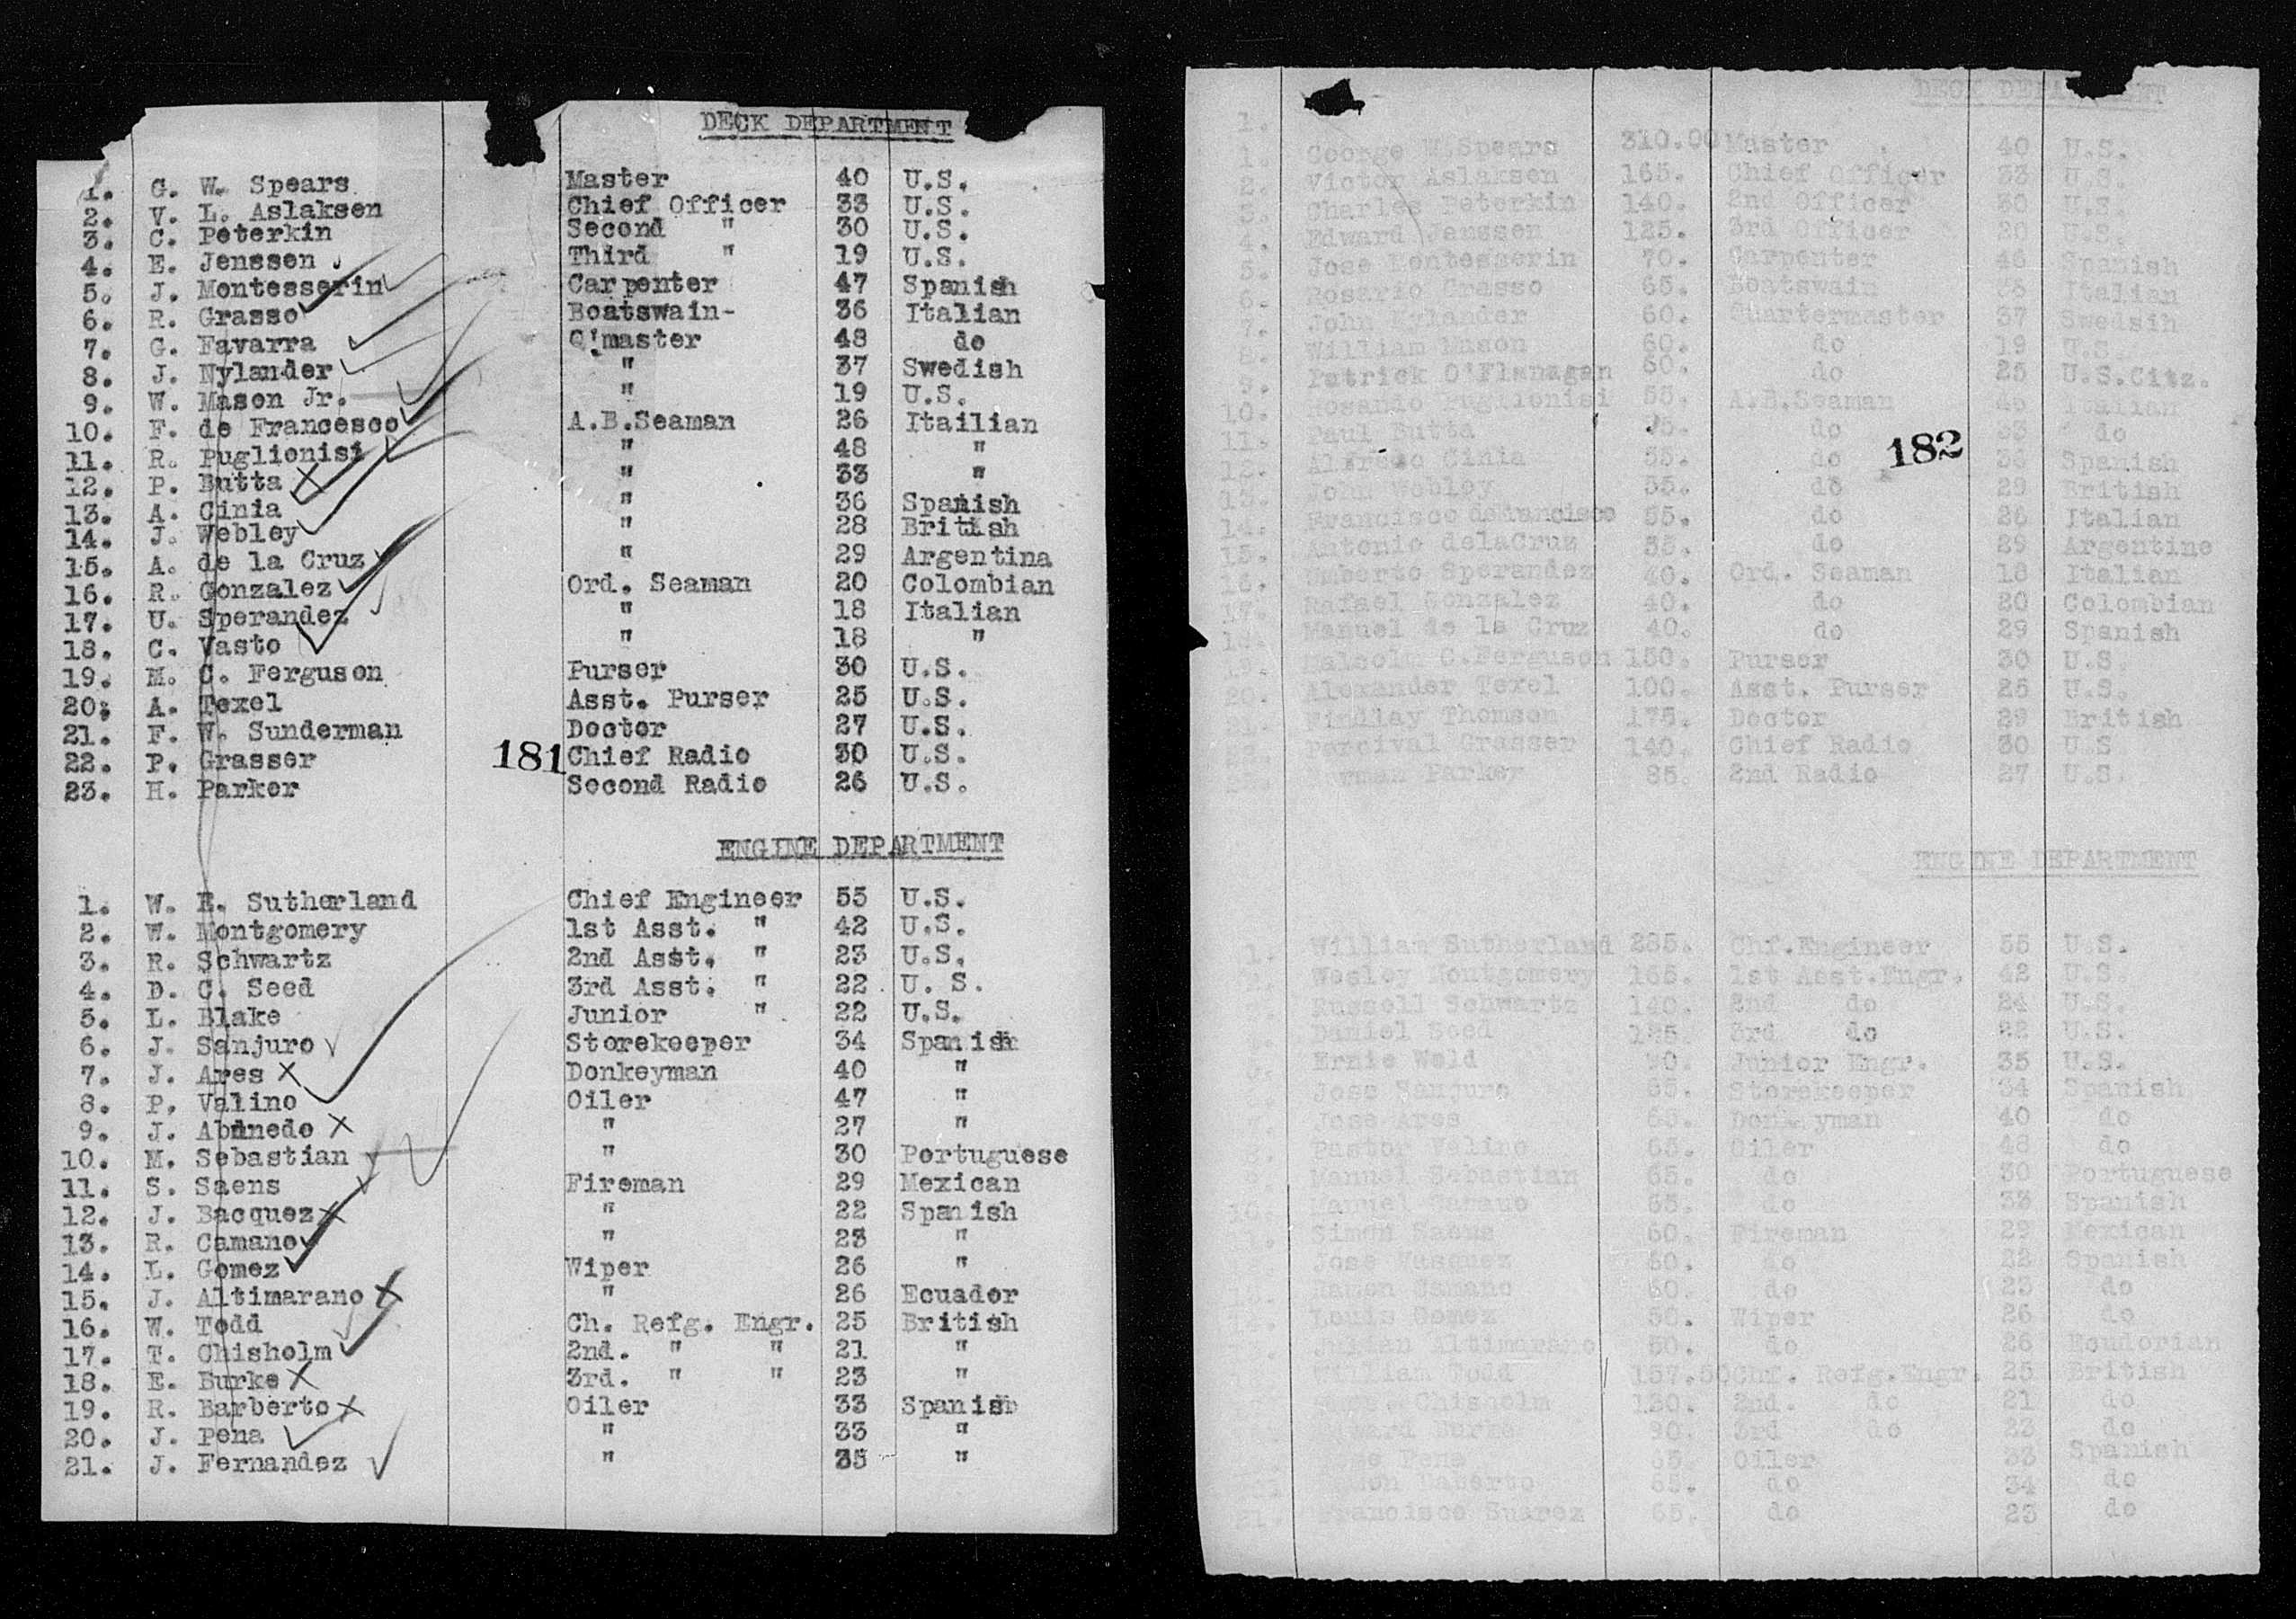 DECK DEPARTMENT
1. G. W. Spears Master 40 U.S.
2. V. L. Aslaksen Chief Officer 33 U.S.
3. C. Peterkin Second " 30 U.S.
4. E. Jenssen Third " 19 U.S.
5. J. Montesserin Carpenter 47 Spanish
6. R. Grasso Boatswain- 36 Italian
7. G. Favarra Q'master 48 do
8. J. Nylander " 37 Swedish
9. W. Mason Jr. " 19 U.S.
10. F. de Francesco A.B.Seaman 26 Itailian
11. R. Puglionisi " 48 "
12. P. Butta " 33 "
13. A. Cinia " 36 Spanish
14. J. Webley " 28 British
15. A. de la Cruz " 29 Argentina
16. R. Gonzalez Ord. Seaman 20 Colombian
17. U. Sperandez " 18 Italian
18. C. Vasto " 18 "
19. M. C. Ferguson Purser 30 U.S.
20. A. Texel Asst. Purser 25 U.S.
21. F. W. Sunderman Doctor 27 U.S.
22. P. Grasser 181 Chief Radio 30 U.S.
23. H. Parker Second Radio 26 U.S.
ENGINE DEPARTMENT
1. W. E. Sutherland Chief Engineer 55 U.S.
2. W. Montgomery 1st Asst. " 42 U.S.
3. R. Schwartz 2nd Asst. " 23 U.S.
4. D. C. Seed 3rd Asst. " 22 U. S.
5. L. Blake Junior " 22 U.S.
6. J. Sanjuro Storekeeper 34 Spanish
7. J. Ares Donkeyman 40 "
8. P. Valino Oiler 47 "
9. J. " 27 "
10. M. Sebastian " 30 Portuguese
11. S. Saens Fireman 29 Mexican
12. J. Bacquez " 22 Spanish
13. R. Camano " 23 "
14. L. Gomez Wiper 26 "
15. J. Altimarano " 26 Ecuador
16. W. Todd Ch. Refg. Engr. 25 British
17. T. Chisholm 2nd. " " 21 "
18. E. Burke 3rd. " " 23 "
19. R. Barberto Oiler 33 Spanish
20. J. Pena " 33 "
21. J. Fernandez " 35 "
DECK DEPARTMENT
1.
1. George W.Spears 310.00 Master 40 U.S.
2. Victor Aslaksen 165. Chief Officer 33 U.S.
3. Charles Peterkin 140. 2nd Officer 30 U.S.
4. Edward Janssen 125. 3rd Officer 20 U.S.
5. Jose Montesserin 70. Carpenter 46 Spanish
6. Rosario Grasso 65. Boatswain Italian
7. John Nylander 60. Quartermaster 37 Swedsih
8. William Mason 60. do 19 U.S.
9. Patrick O'Flanagan 60. do 25 U.S.Citz.
10. Puglionisi 55. A.B.Seaman Italian
11. Paul Butta do 33 do
182
Alfredo Cinia 55. do 36 Spanish
13. John Webley 55. do 29 British
14. Francisco 55. do 26 Italian
15. Antonio delaCruz 55. do 29 Argentine
16. Umberto Sperandez 40. Ord. Seaman 18 Italian
17. Rafael Gonzalez 40. do 20 Colombian
18. Manuel de la Cruz 40. do 29 Spanish
19. Malcolm C.Ferguson 150. Purser 30 U.S.
20. Alexander Texel 100. Asst. Purser 25 U.S.
21. Findlay Thomson 175. Doctor 29 British
Percival Grasser 140. Chief Radio 30 U.S
Parker 85. 2nd Radio 27 U.S.
ENGINE DEPARTMENT
1. William Sutherland 285. Chf.Engineer 55 U.S.
2. Wesley Montgomery 165. 1st Asst.Engr. 42 U.S.
Russell Schwartz 140. 2nd do 24 U.S.
Daniel Seed 125 3rd do 22 U.S.
Ernie Weld 90. Junior Engr. 35 U.S.
Jose Sanjuro 65. Storekeeper 34 Spanish
Jose Ares 65. Donkeyman 40 do
8. Pastor Valino 65. Oiler 48 do
Manuel Sebastian 65. do 30 Portuguese
10. Manuel 65. do 33 Spanish
Simon Saens 60. Fireman 29 Mexican
Jose Vasquez 60. do 22 Spanish
Ramon Camano 60. do 23 do
Louis Gomez 50. Wiper 26 do
Altimarano 50. do 26 Ecudorian
William Todd 157.50 Chf. Refg.Engr. 25 British
Chisholm 130. 2nd. do 21 do
Edward Burke 90. 3rd do 23 do
Jose Pena 65 Oiler 33 Spanish
65. do 34 do
21. Francisco Suarez 65. do 23 do